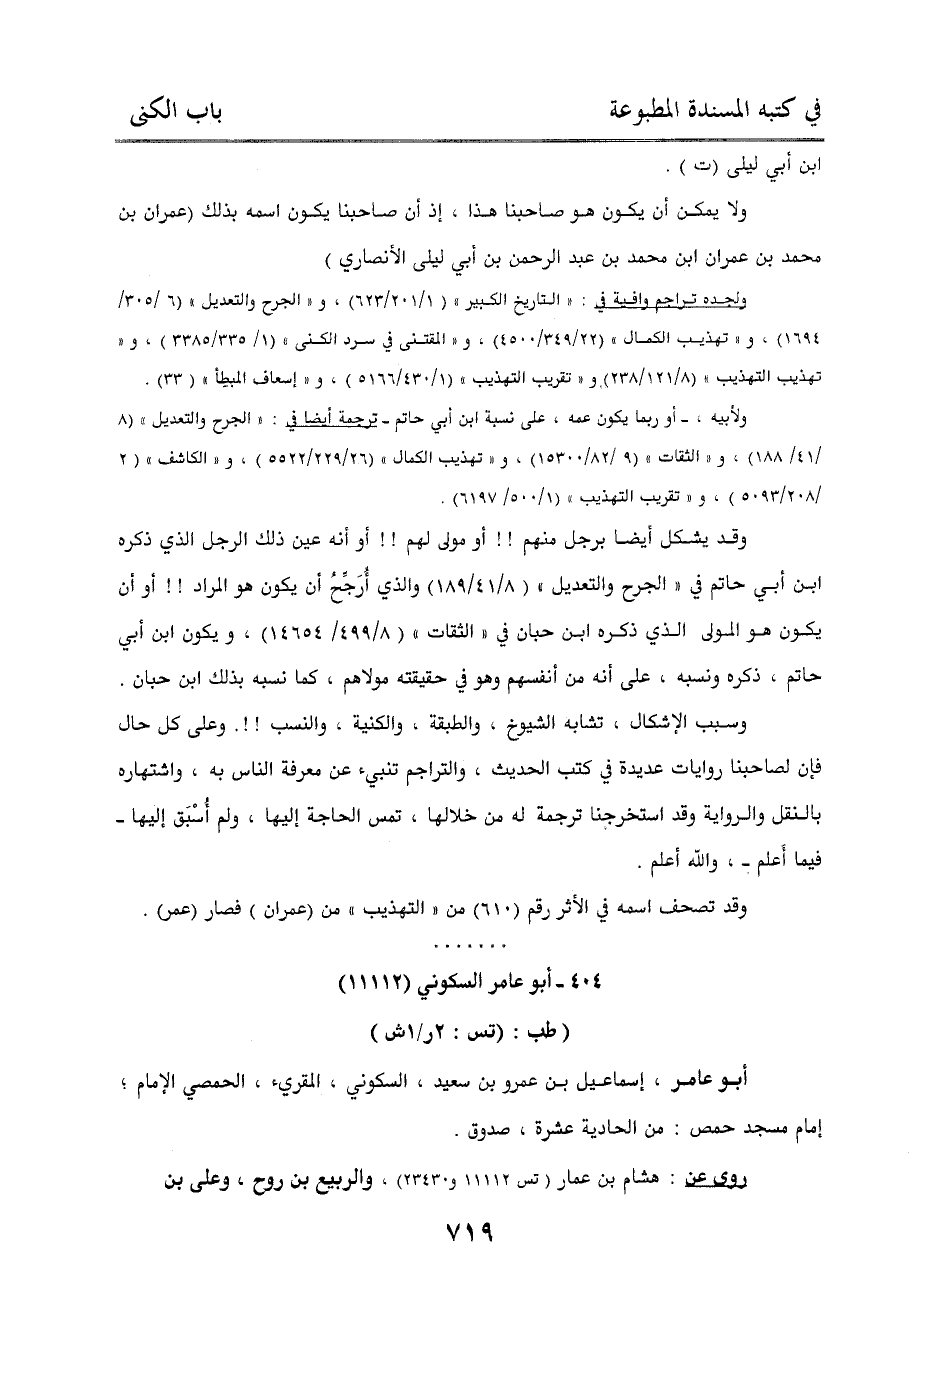 في كتبه المسندة المطبوعة باب الكنى
ابن أبي ليلى (ت ) .
ولا يمكن أن يكون هو صاحبنا هذا ، إذ أن صاحبنا يكون اسمه بذلك (عمران بن
محمد بن عمران ابن محمد بن عبد الرحمن بن أبي ليلى الأنصاري )
ولجده تراجم وافية في : « التاريخ الكبير » ( ٦٢٣/٢٠١/١) ، و « الجرح والتعديل » (٦ /٣٠٥/
١٦٩٤) ، و « تهذيب الكمال » (٤٥٠٠/٣٤٩/٢٢) ، و « المقتنى في سرد الكنى » (١/ ٣٣٨٥/٣٣٥ ) ، و «
تهذيب التهذيب » (٢٣٨/١٢١/٨) و « تقريب التهذيب » (٥١٦٦/٤٣٠/١ ) ، و « إسعاف المبطأ » ( ٣٣) .
ولأبيه ، ـ أو ربما يكون عمه ، على نسبة ابن أبي حاتم ـ ترجمة أيضا في : « الجرح والتعديل » (٨
/٤١/ ١٨٨) ، و « الثقات » (٩ /١٥٣٠٠/٨٢) ، و « تهذيب الكمال » (٥٥٢٢/٢٢٩/٢٦ ) ، و « الكاشف » ( ٢
/٥٠٩٣/٢٠٨ ) ، و « تقريب التهذيب » (٥٠٠/١/ ٦١٩٧) .
وقد يشكل أيضا برجل منهم !! أو مولى لهم !! أو أنه عين ذلك الرجل الذي ذكره
ابن أبي حاتم في « الجرح والتعديل » ( ١٨٩/٤١/٨) والذي أُرَجِّحُ أن يكون هو المراد !! أو أن
يكون هو المولى الذي ذكره ابن حبان في « الثقات » ( ٤٩٩/٨/ ١٤٦٥٤) ، و يكون ابن أبي
حاتم ، ذكره ونسبه ، على أنه من أنفسهم وهو في حقيقته مولاهم ، كما نسبه بذلك ابن حبان .
وسبب الإشكال ، تشابه الشيوخ ، والطبقة ، والكنية ، والنسب !!. وعلى كل حال
فإن لصاحبنا روايات عديدة في كتب الحديث ، والتراجم تنبيء عن معرفة الناس به ، واشتهاره
بالنقل والرواية وقد استخرجنا ترجمة له من خلالها ، تمس الحاجة إليها ، ولم أُسْبَق إليها ـ
فيما أَعلم ـ ، والله أعلم .
وقد تصحف اسمه في الأثر رقم (٦١٠) من « التهذيب » من (عمران ) فصار (عمر) .
.......
٤٠٤ ـ أبو عامر السكوني (١١١١٢)
( طب : (تس : ٢ر/١ش )
أبو عامر ، إسماعيل بن عمرو بن سعيد ، السكوني ، المقريء ، الحمصي الإمام ؛
إمام مسجد حمص : من الحادية عشرة ، صدوق .
روى عن : هشام بن عمار ( تس ١١١١٢ و٢٣٤٣٠) ، والربيع بن روح ، وعلى بن
٧١٩